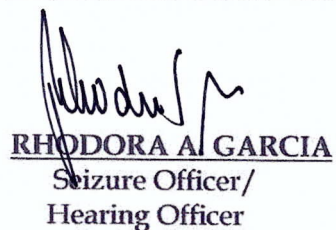 RHODORA A. GARCIA
Seizure Officer/
Hearing Officer